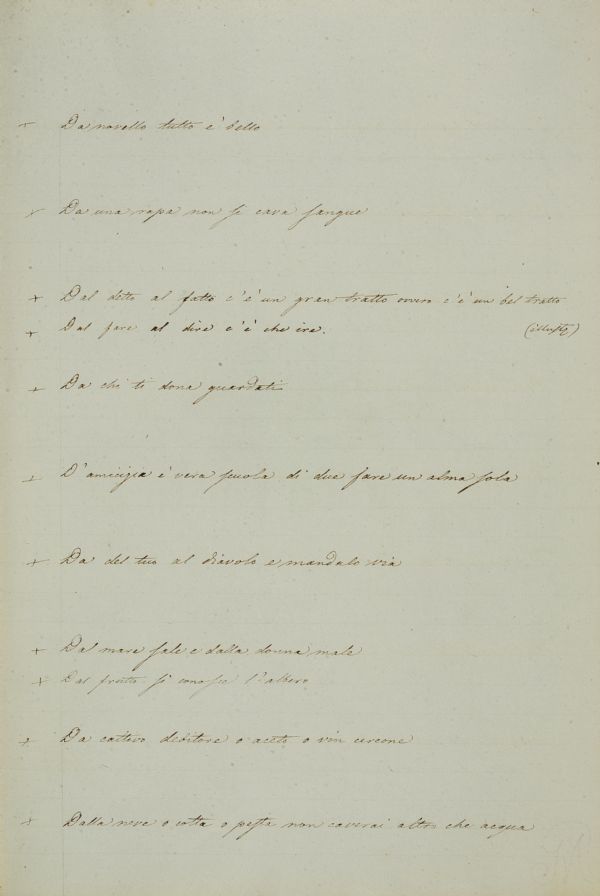 + Da novello tutto è bello
+ Da una rapa non si cava sangue
+ Dal detto al fatto c'è un gran tratto ovvero c'è un bel tratto
+ Dal fare al dire c'è che ire.
+ Da chi ti dona guardati
+ D'amicizia è vera scuola di due fare un alma sola
+ Da del tuo al diavolo e mandalo via
+ Dal mare sale e dalla donna male
+ Dal frutto si conosce l'albero
+ Da cattivo debitore o aceto o vin cercone
+ Dalla neve o cotta o pesta non caverai altro che acqua